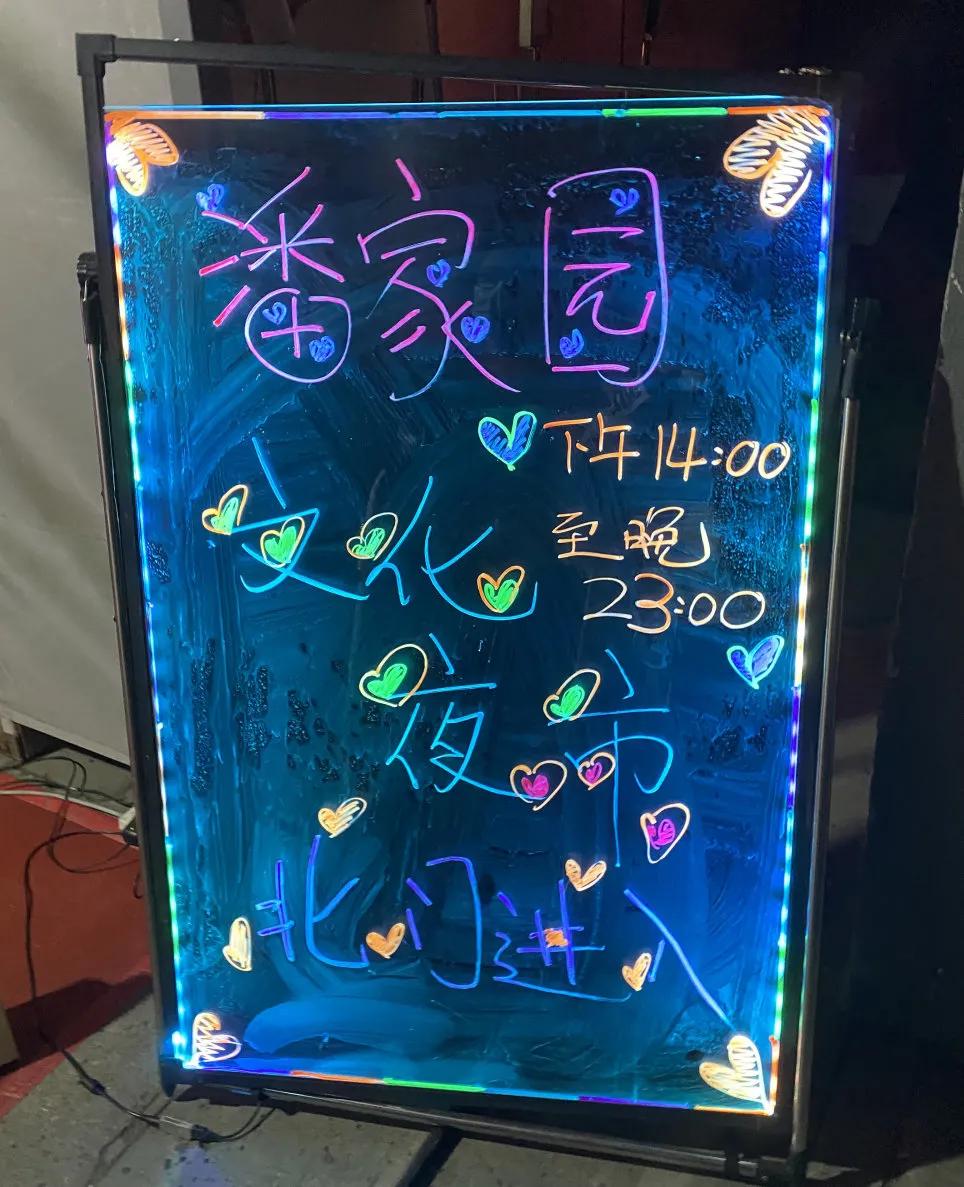 潘家园
下午14:00
至晚
23:00
文化
夜市
北门进入